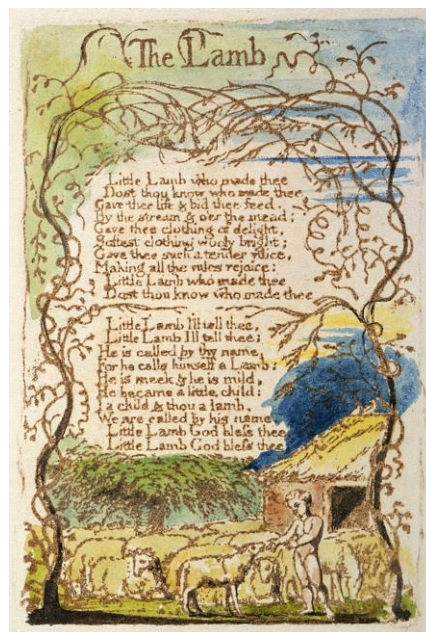 The Lamb
Little Lamb who made thee
Dost thou know who made thee
Gave thee life & bid thee feed,
By the stream & o'er the mead;
Gave thee clothing of delight,
Softest clothing wooly bright;
Gave thee such a tender voice,
Making all the vales rejoice:
Little Lamb who made thee
Dost thou know who made thee
Little Lamb I'll tell thee,
Little Lamb I'll tell thee;
He is called by thy name,
For he calls himself a Lamb:
He is meek & he is mild,
He became a little child:
I a child & thou a lamb,
We are called by his name,
Little Lamb God bless thee,
Little Lamb God bless thee.